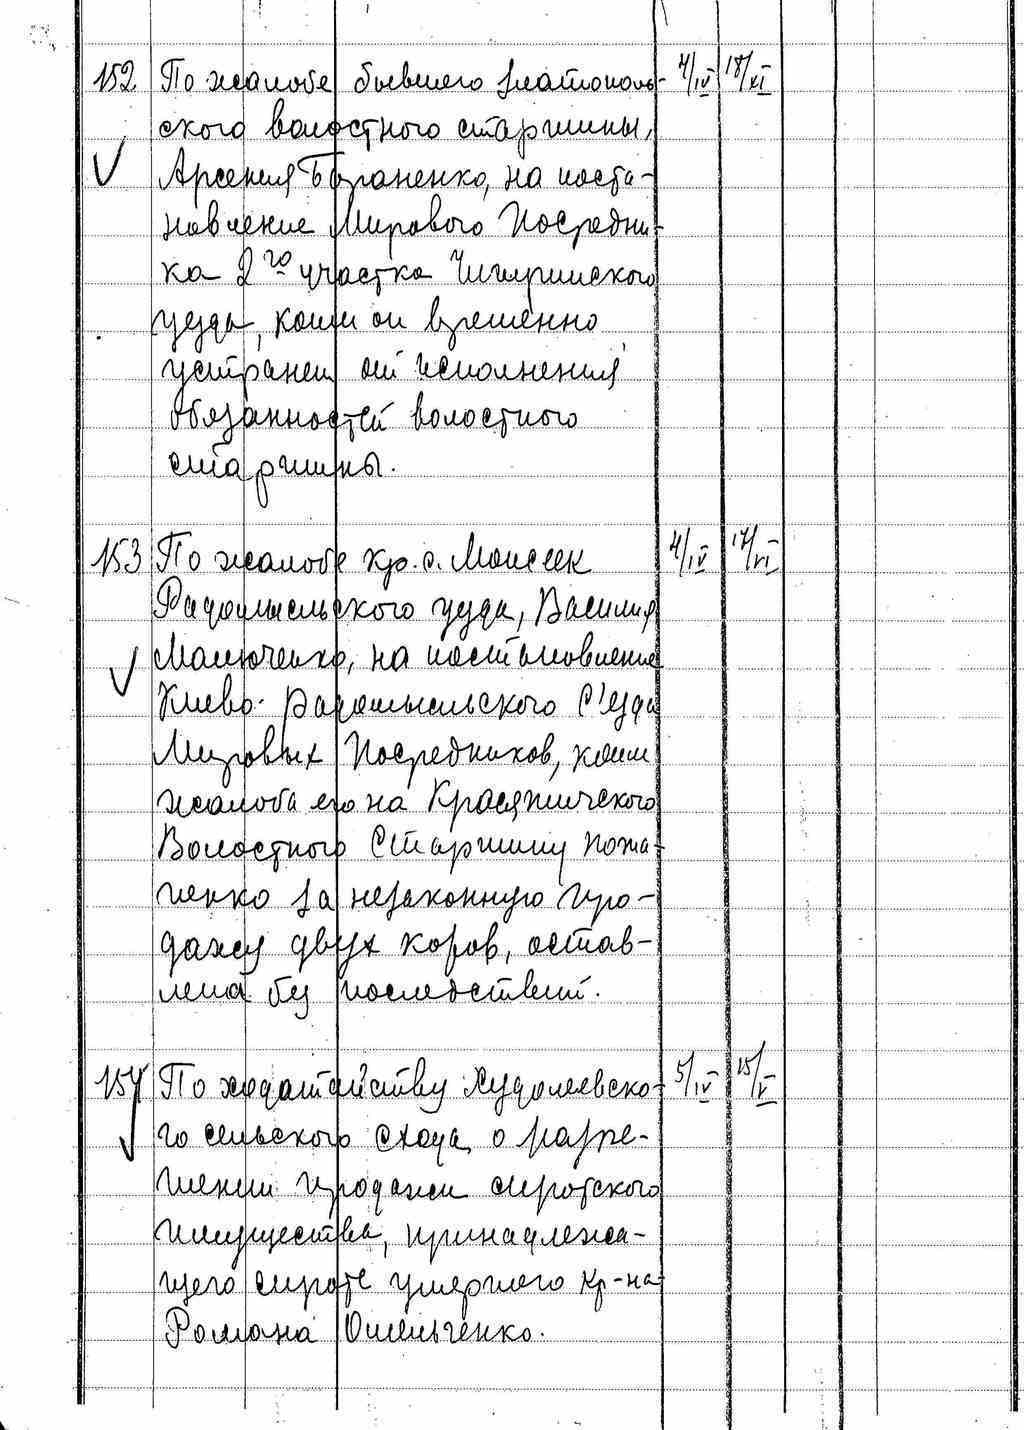 152 По жалобе бывшего златополь- 4/IV 18/XI
ского волостного старшины,
Арсения Бараненко, на поста-
новление Мирового Посредни-
ка 2го участка Чигиринского
уезда, коим он временно
устранен от исполнения
обязанностей волостного
старшины.
153 По жалобе кр. с. Моисеек 4/IV 17/VI
Радомысльского уезда, Василия
Малюченко, на постановление
Киево-Радомысльского С'езда
Мировых Посредников, коим
жалоба его на Красятичского
Волостного Старшину
за незаконную про-
дажу двух коров, остав-
лена без последствий.
154 По ходатайству Худолеевско- 5/IV 15/V
го сельского схода о разре-
шении продажи сиротского
имущества, принадлежа-
щего сироте умершего кр-на
Романа Омельченко.